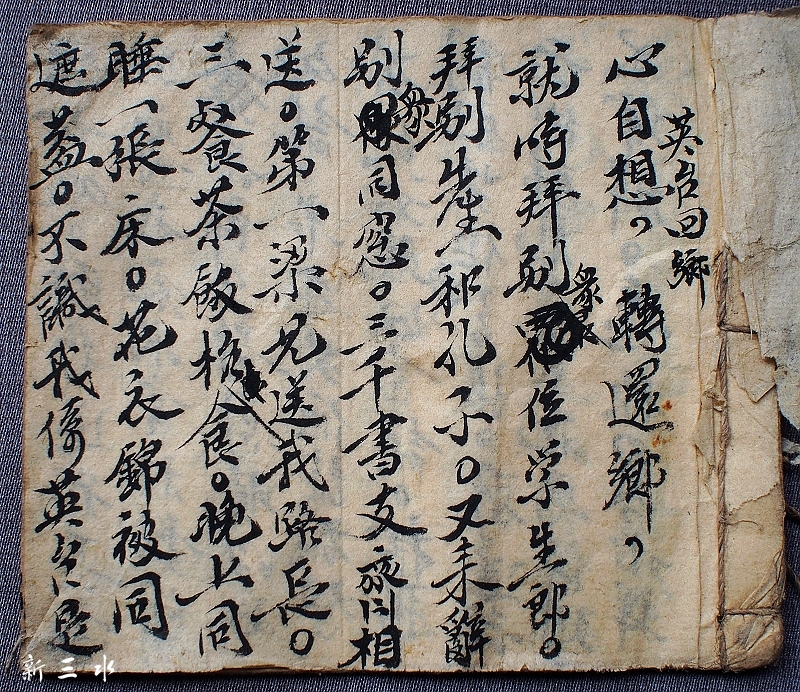 英台回鄉
心自想，轉還鄉，
就時拜别衆位学生郎。
拜别先生和孔子。又来辭
别衆同窓。三千書友齐相
送。第一梁兄送我路長。
三餐茶飯枱食。晚上同
睡一張床。花衣錦被同
遮盖。不識我係英台是
新三水